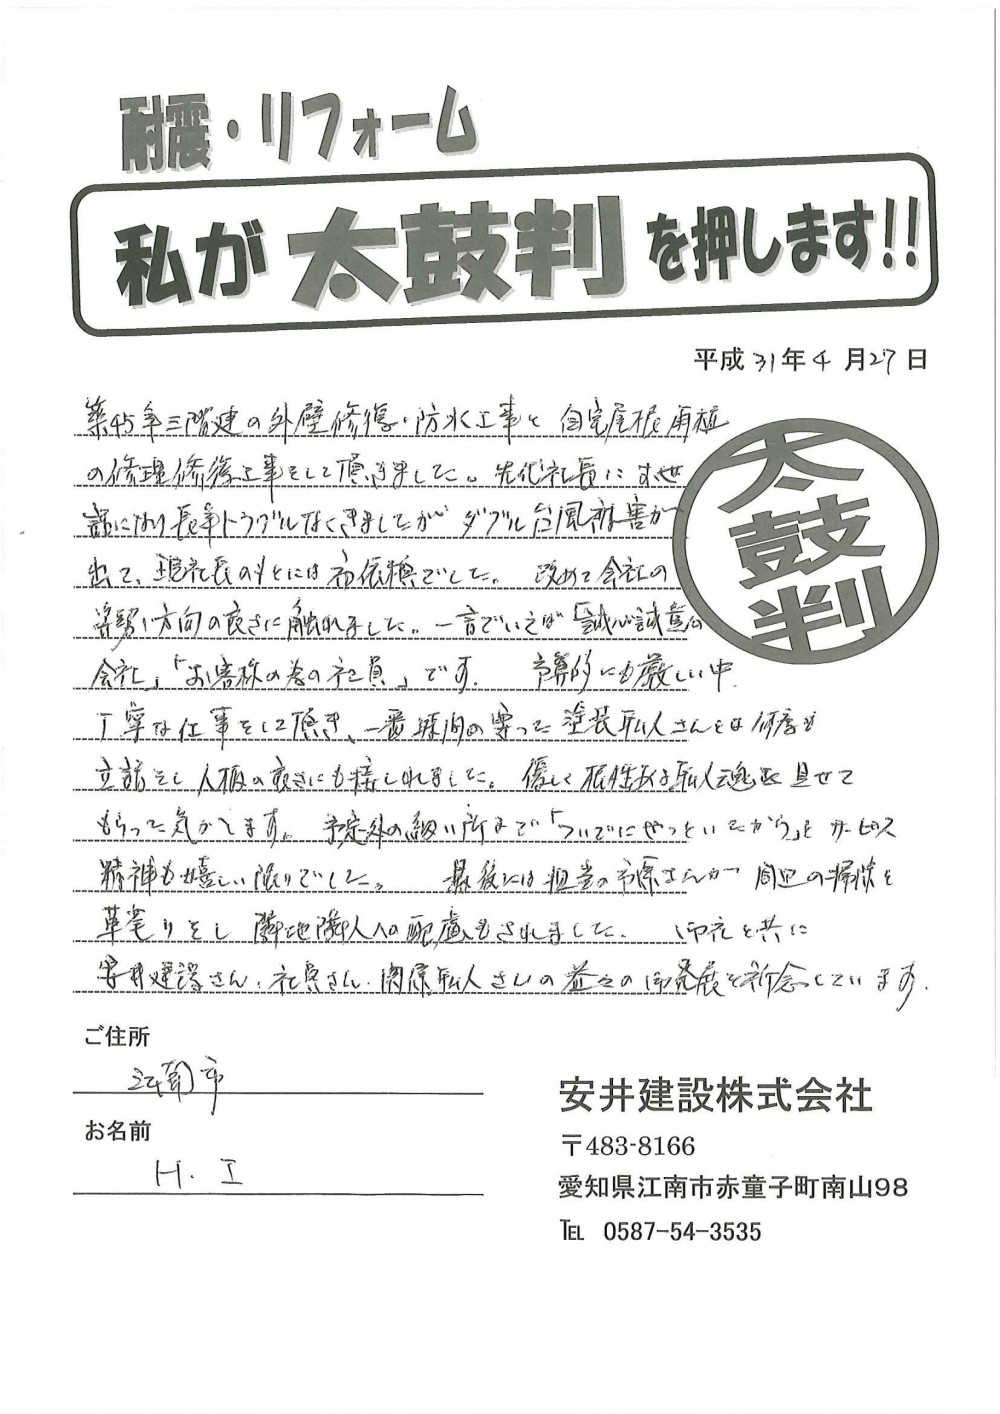 耐震・リフォーム
私が太鼓判を押します!!
平成31年4月27日
築45年三階建の外壁修復・防水工事と自宅屋根角柱
の修理修復工事をして頂きました。先代社長にお世
話になり長年トラブルなくきましたがダブル台風被害が
出て、現社長のもとには初依頼でした。改めて会社の
姿勢い方向の良さに触れました。一言でいえば「誠心誠意な
会社」「お客様の為の社員」です。予算的にも厳しい中
丁寧な仕事をして頂き、一番時間の要った塗装職人さんとは何度も
立話をし人柄の良さにも接しれました。優しく根性ある職人魂を見せて
もらった気がします。予定外の細い所まで「ついでにやっといたから」とサービス
精神も嬉しい限りでした。最後には担当の市原さんが周辺の掃除と
草むしりをし隣地隣人への配慮もされました。御礼と共に
安井建設さん、社員さん、関係職人さんの益々の御発展を祈念しています。
太鼓判
ご住所
江南市
お名前
H.I
安井建設株式会社
〒483-8166
愛知県江南市赤童子町南山98
℡ 0587-54-3535